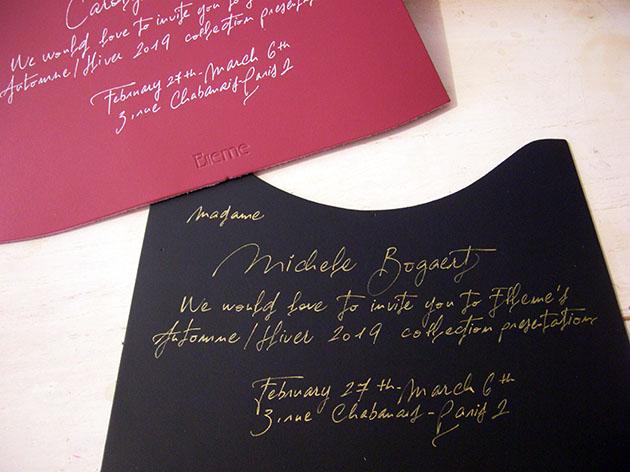 We would love to invite you to
Automne/Hiver 2019 collection presentat
February 27th-March 6th
3, rue Chabanais-Paris 2
madame
Michele Bogaert
We would love to invite you to Etheme's
Automne/Hiver 2019 collection presentation
February 27th-March 6th
3, rue Chabanais-Paris 2